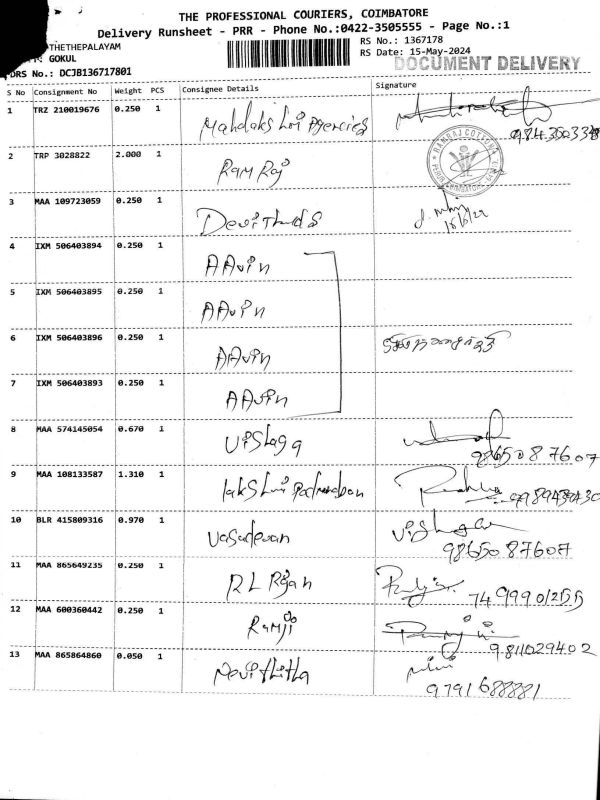 THE PROFESSIONAL COURIERS, COIMBATORE
Delivery Runsheet - PRR - Phone No.:0422-3505555 - Page No.:1
THETHEPALAYAM
RS No.: 1367178
: GOKUL
RS Date: 15-May-2024
DRS No.: DCJB136717801
DOCUMENT DELIVERY
S No Consignment No Weight PCS Consignee Details Signature
1 TRZ 210019676 0.250 1 Mahdakshmi Agencies
2 TRP 3028822 2.000 1 RamRaj
RAMRAJ COTTON
3 MAA 109723059 0.250 1
4 IXM 506403894 0.250 1 AAvin
5 IXM 506403895 0.250 1 AAvin
6 IXM 506403896 0.250 1 AAvin
7 IXM 506403893 0.250 1 AAvin
8 MAA 574145054 0.670 1 Vishaga
9865087607
9 MAA 108133587 1.310 1
10 BLR 415809316 0.970 1 Vasudevan
9865087607
11 MAA 865649235 0.250 1
7499901255
12 MAA 600360442 0.250 1 Ramji
9811029402
13 MAA 865864860 0.050 1
9791688881